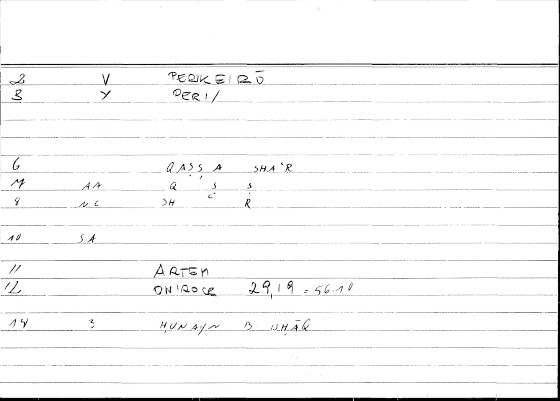 2 V PERIKEIRŌ
3 Y PERI/
6 QAṢṢA SHAʿR
7 AA Q Ṣ Ṣ
8 NC SH ʿ R
10 SA
11 ARTEM
12 ONIROCR 29,19 = 56.10
14 3 ḤUNAYN B ISḤĀQ